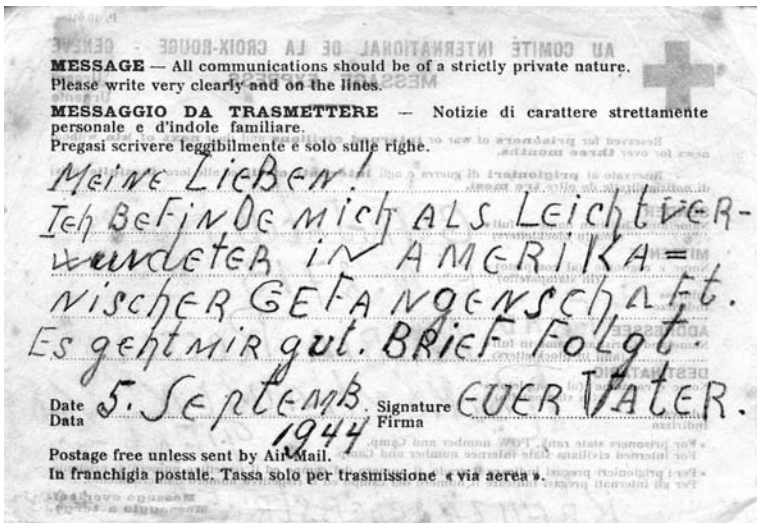 MESSAGE — All communications should be of a strictly private nature.
Please write very clearly and on the lines.
MESSAGGIO DA TRASMETTERE — Notizie di carattere strettamente
personale e d'indole familiare.
Pregasi scrivere leggibilmente e solo sulle righe.
Meine Lieben!
Ich befinde mich als Leichtver-
wundeter in Amerika=
nischer Gefangenschaft.
Es geht mir gut. Brief folgt.
Date 5. Septemb. Signature Euer Vater.
Data 1944 Firma
Postage free unless sent by Air Mail.
In franchigia postale. Tassa solo per trasmissione « via aerea ».